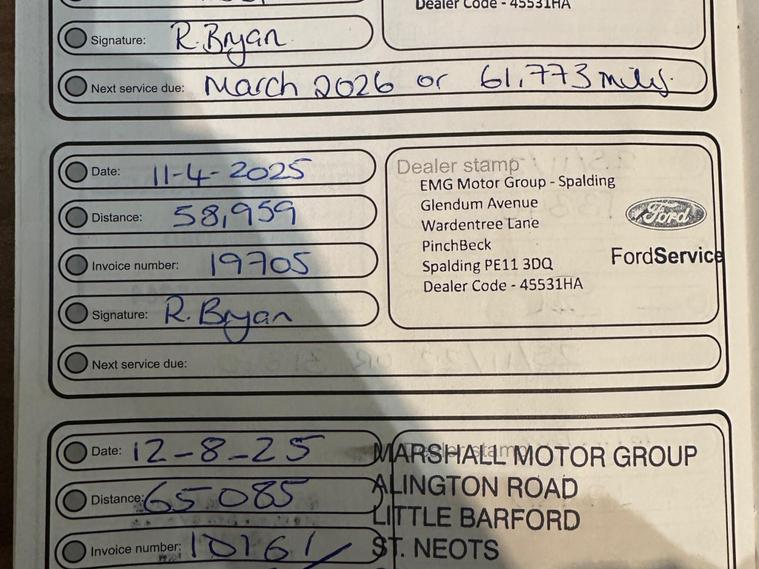 Dealer Code - 45531HA
Signature: R.Bryan
Next service due: March 2026 or 61,773 miles.
Date: 11-4-2025
Distance: 58,959
Invoice number: 19705
Signature: R.Bryan
Next service due:
Dealer stamp
EMG Motor Group - Spalding
Glendum Avenue
Wardentree Lane
PinchBeck
Spalding PE11 3DQ
Dealer Code - 45531HA
Ford
FordService
Date: 12-8-25
Distance: 65085
Invoice number: 10161
Dealer stamp
MARSHALL MOTOR GROUP
ALINGTON ROAD
LITTLE BARFORD
ST. NEOTS